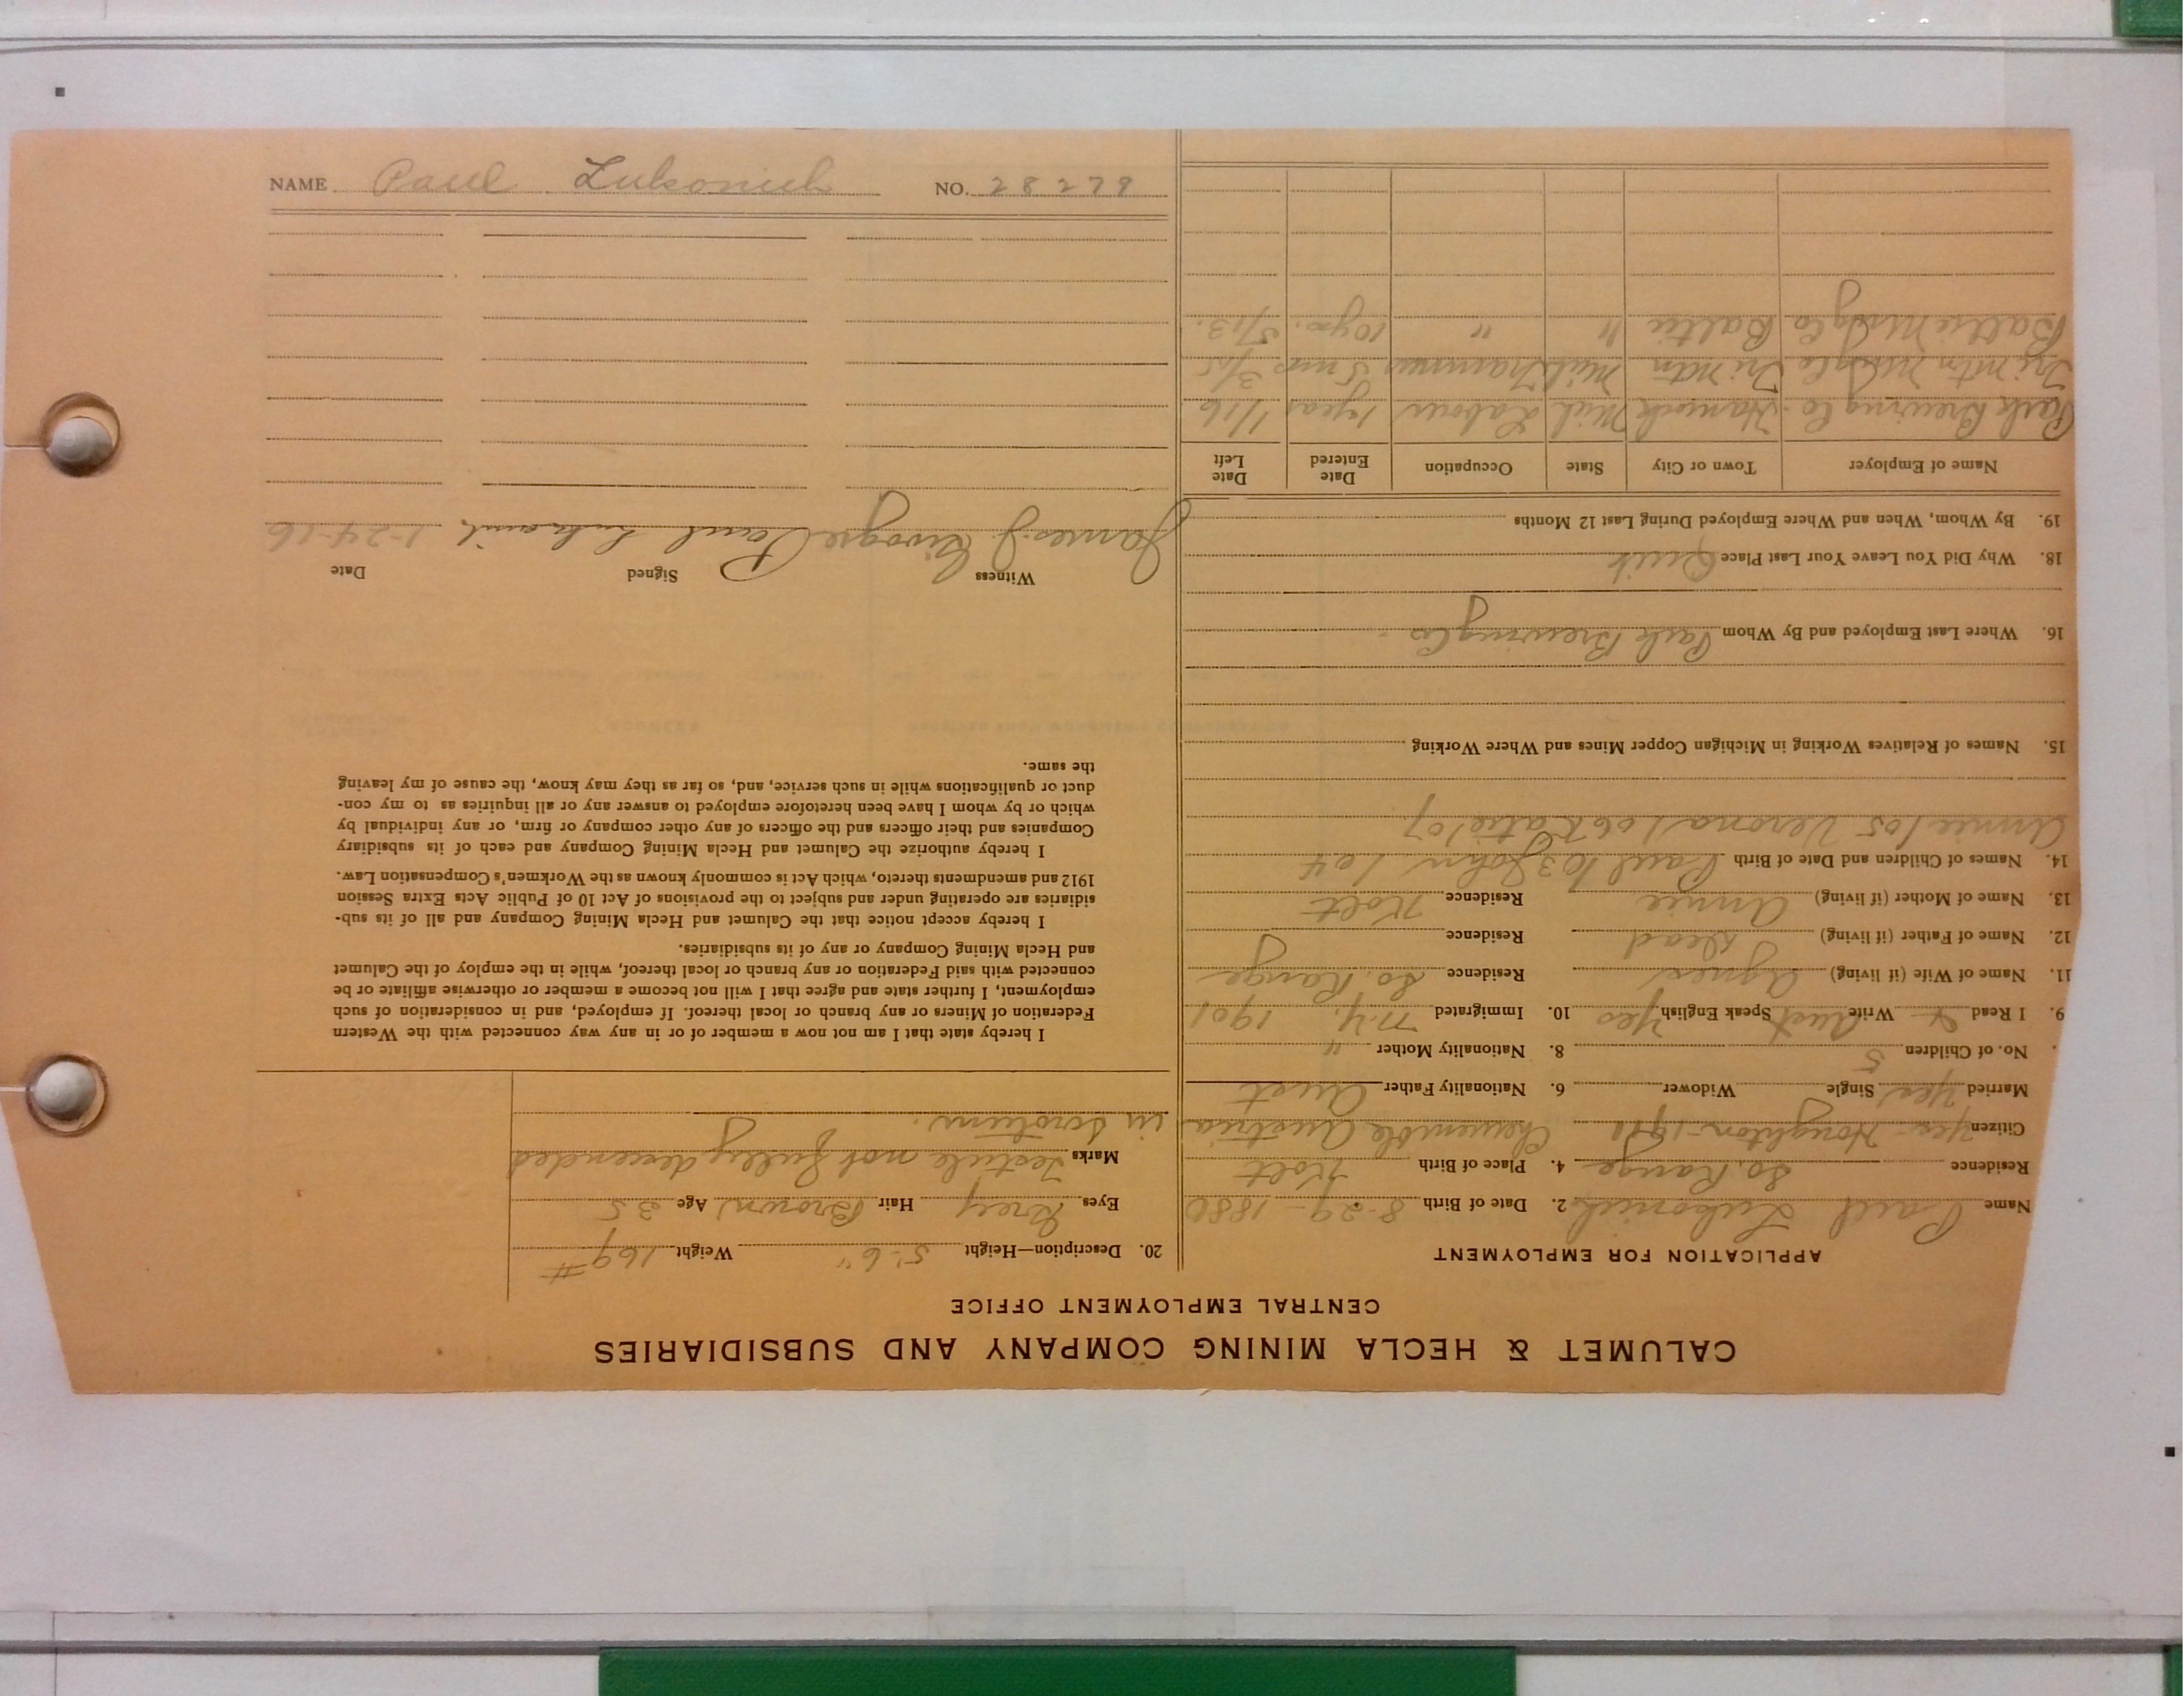 CALUMET & HECLA MINING COMPANY AND SUBSIDIARIES
CENTRAL EMPLOYMENT OFFICE
APPLICATION FOR EMPLOYMENT
Name Paul Lukonich 2. Date of Birth 8-29-1880
Residence So. Range 4. Place of Birth Kolt
Citizen yes - Houghton - 1911 Austria
Married yes Single Widower 6. Nationality Father Aust
No. of Children 5 8. Nationality Mother "
9. I Read Write Aust Speak English yes 10. Immigrated N.Y. 1901
11. Name of Wife (if living) Agnes Residence So. Range
12. Name of Father (if living) Dead Residence
13. Name of Mother (if living) Annie Residence Kolt
14. Names of Children and Date of Birth Paul /03 John /04
Annie /05 Verona /06 Katie /07
15. Names of Relatives Working in Michigan Copper Mines and Where Working
16. Where Last Employed and By Whom Park Brewing Co.
18. Why Did You Leave Your Last Place Quit
19. By Whom, When and Where Employed During Last 12 Months
Name of Employer Town or City State Occupation Date Entered Date Left
Park Brewing Co. Hancock Mich Labour 1 year 1/16
Tri Mtn Mng Co Tri Mtn Mich Trammer 5 mos 3/15
Baltic Mng Co Baltic " " 10 yrs. 5/13.
20. Description—Height 5'-6" Weight 169#
Eyes Grey Hair Brown Age 35
Marks Testicle not fully descended
in scrotum.
I hereby state that I am not now a member of or in any way connected with the Western
Federation of Miners or any branch or local thereof. If employed, and in consideration of such
employment, I further state and agree that I will not become a member or otherwise affiliate or be
connected with said Federation or any branch or local thereof, while in the employ of the Calumet
and Hecla Mining Company or any of its subsidiaries.
I hereby accept notice that the Calumet and Hecla Mining Company and all of its sub-
sidiaries are operating under and subject to the provisions of Act 10 of Public Acts Extra Session
1912 and amendments thereto, which Act is commonly known as the Workmen's Compensation Law.
I hereby authorize the Calumet and Hecla Mining Company and each of its subsidiary
Companies and their officers and the officers of any other company or firm, or any individual by
which or by whom I have been heretofore employed to answer any or all inquiries as to my con-
duct or qualifications while in such service, and, so far as they may know, the cause of my leaving
the same.
Witness Signed Date
James J. Paul Lukonich 1-24-16
NAME Paul Lukonich NO. 28279